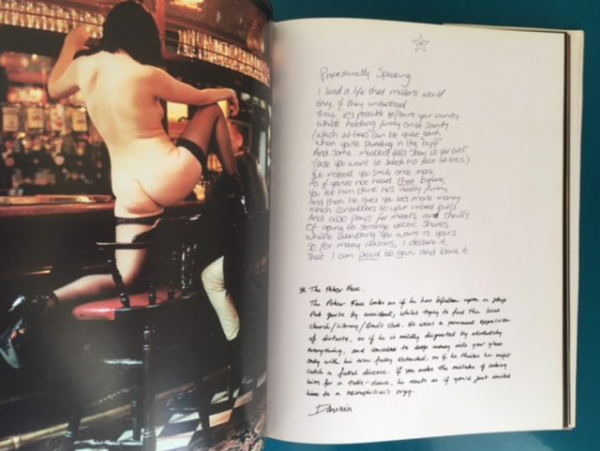 Professionally Speaking
I lead a life that millions would
Envy, if they understood
That it's possible to flaunt your
Whilst holding firmly onto sanity
(which at times can be quite tough
When you're standing in the "buff"
And some shouts "Show us yer gut!"
you want to smash his face to bits)
But instead you smile once more,
As if you've not heard that before,
You let him think he's really funny
And then he gives you lots more money
which contributes to your
And also pays for meals and thrills
Of going to strange exotic shores,
where everything you want is yours
So for many reasons, I declare it,
That I am proud to grin and bare it
* The Poker Face.
The Poker Face looks as if he has fallen upon a strip
Pub quite by accident, whilst trying to find the local
church/library/ club. He wears a permanent expression
of distaste, as if he is mildly disgusted by absolutely
everything, and to drop money into your glass
only with his arm fully extended, as if he thinks he might
catch a fatal disease. If you make the mistake of asking
him for a table-dance, he reacts as if you'd just invited
him to a necrophiliac's orgy.